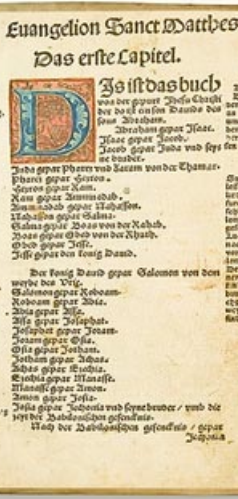 Euangelion Sanct Matthes
Das erste Capitel.
Dis ist das buch
von der gepurt Jhesu Christi
der do ist ein son Dauids des
sons Abraham.
Abraham gepar Isaac.
Isaac gepar Jacob.
Jacob gepar Juda vnd seyne
bruder.
Juda gepar Pharez vnd Zaram von der Thamar.
Pharez gepar Hezron.
Hezron gepar Ram.
Ram gepar Amminadab.
Amminadab gepar Nahasson.
Nahasson gepar Salma.
Salma gepar Boas von der Rahab.
Boas gepar Obed von der Rhuth.
Obed gepar Jesse.
Jesse gepar den konig Dauid.
Der konig Dauid gepar Salomon von dem
weybe des Vrie.
Salomon gepar Roboam.
Roboam gepar Abia.
Abia gepar Assa.
Assa gepar Josaphat.
Josaphat gepar Joram.
Joram gepar Osia.
Osia gepar Jotham.
Jotham gepar Achas.
Achas gepar Ezechia.
Ezechia gepar Manasse.
Manasse gepar Amon.
Amon gepar Josia.
Josia gepar Jechonia vnd seyne bruder / vmb die
zeyt der Babilonischen gefencknis.
Nach der Babilonischen gefencknis / gepar
Jechonia